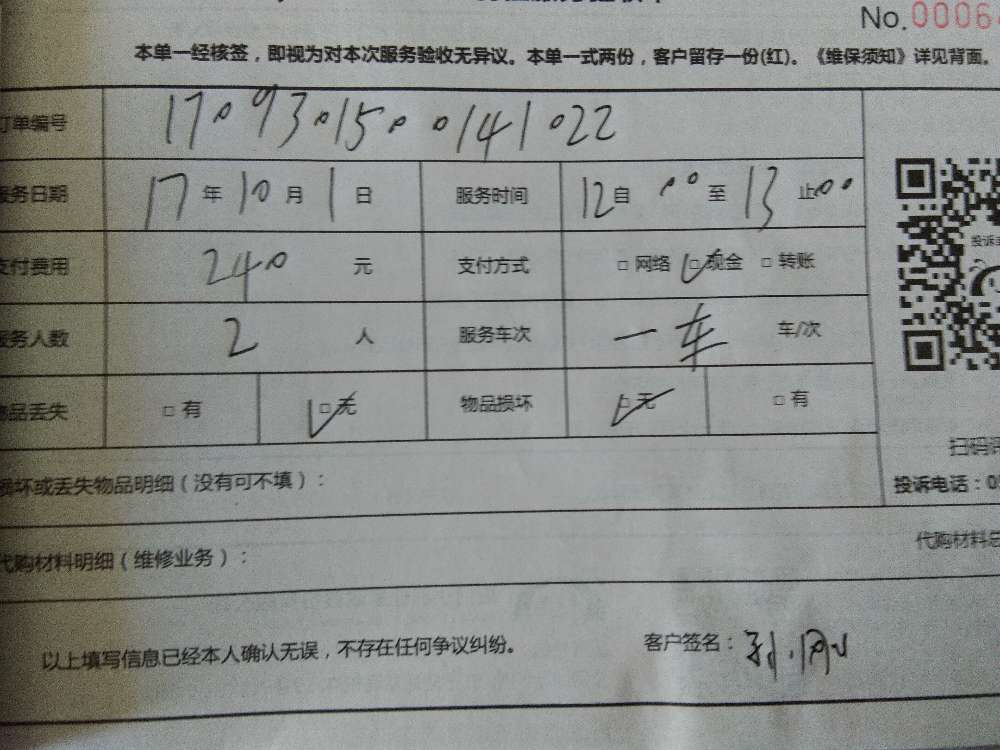 No.0006
本单一经核签，即视为对本次服务验收无异议。本单一式两份，客户留存一份(红)。《维保须知》详见背面。
订单编号 1709301500141022
服务日期 17年10月1日 服务时间 12自00至13止00
支付费用 240元 支付方式 □网络 ☑现金 □转账
服务人数 2人 服务车次 一车 车/次
物品丢失 □有 ☑无 物品损坏 ☑无 □有
损坏或丢失物品明细（没有可不填）：
扫码
投诉电话：0
代购材料明细（维修业务）： 代购材料总
以上填写信息已经本人确认无误，不存在任何争议纠纷。 客户签名：